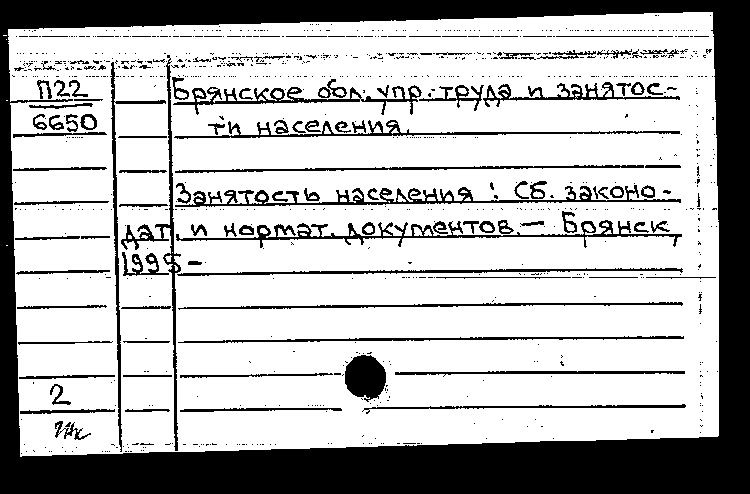 П22
6650
Брянское обл. упр. труда и занятос-
ти населения.
Занятость населения : Сб. законо-
дат. и нормат. документов. — Брянск,
1995 -
2